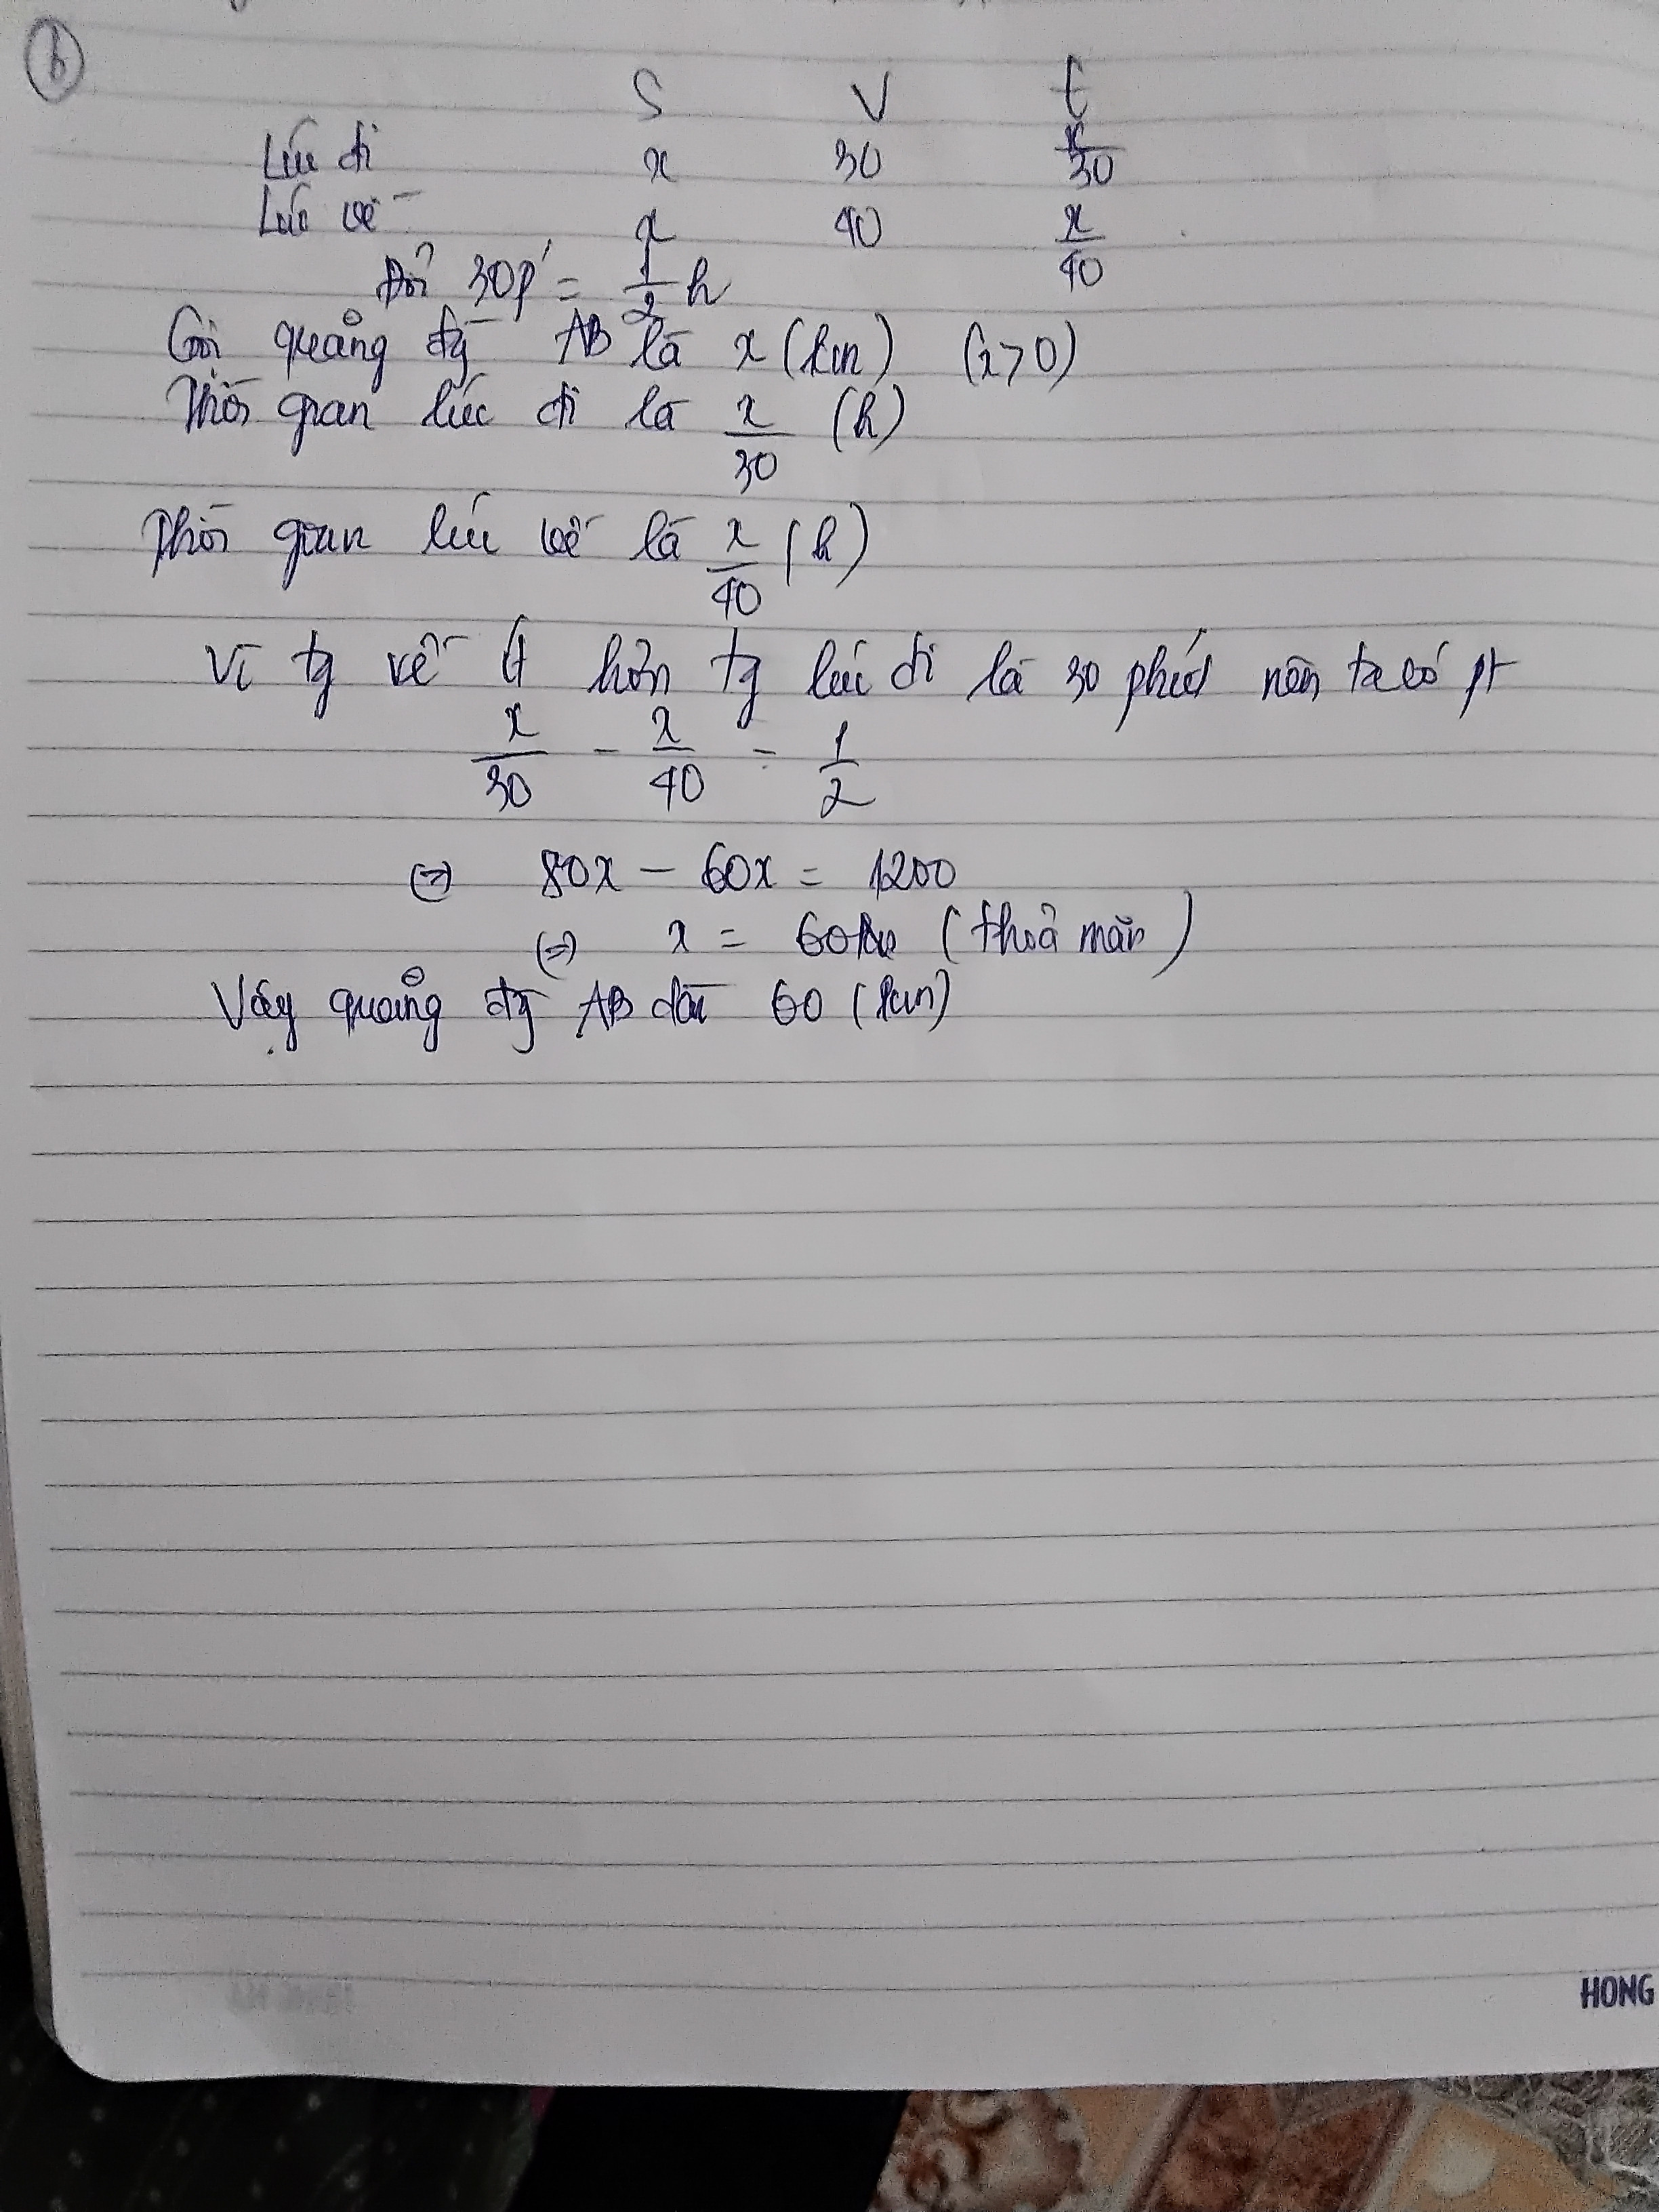 b
S V t
Lúc đi x 30 x/30
Lúc về x 40 x/40
Đổi 30p' = 1/2 h
Gọi quảng đg AB là x (km) (x>0)
Thời gian lúc đi là x/30 (h)
Thời gian lúc về là x/40 (h)
Vì tg về ít hơn tg lúc đi là 30 phút nên ta có pt
x/30 - x/40 = 1/2
(=) 80x - 60x = 1200
(=) x = 60km (thoả mãn)
Vậy quảng đg AB dài 60 (km)
HONG